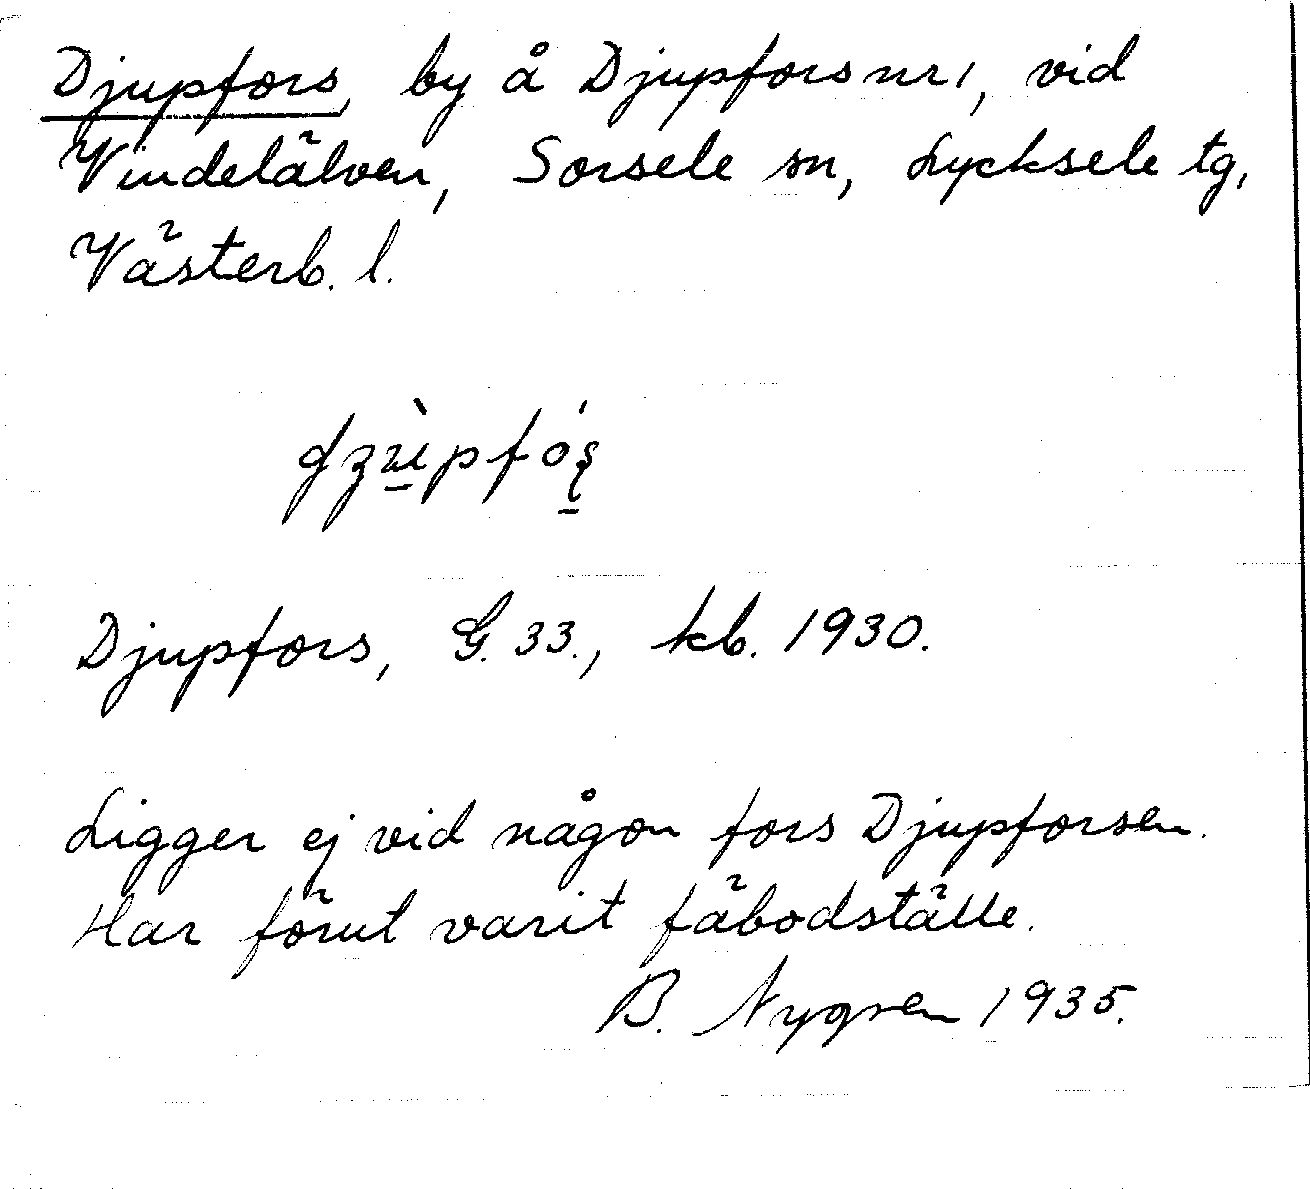 Djupfors, by å Djupfors nr 1, vid
Vindelälven, Sorsele sn, Lycksele tg,
Västerb. l.
Djupfors, G. 33., kb. 1930.
Ligger ej vid någon fors Djupforsen.
Har förut varit fäbodställe.
B. Nygren 1935.